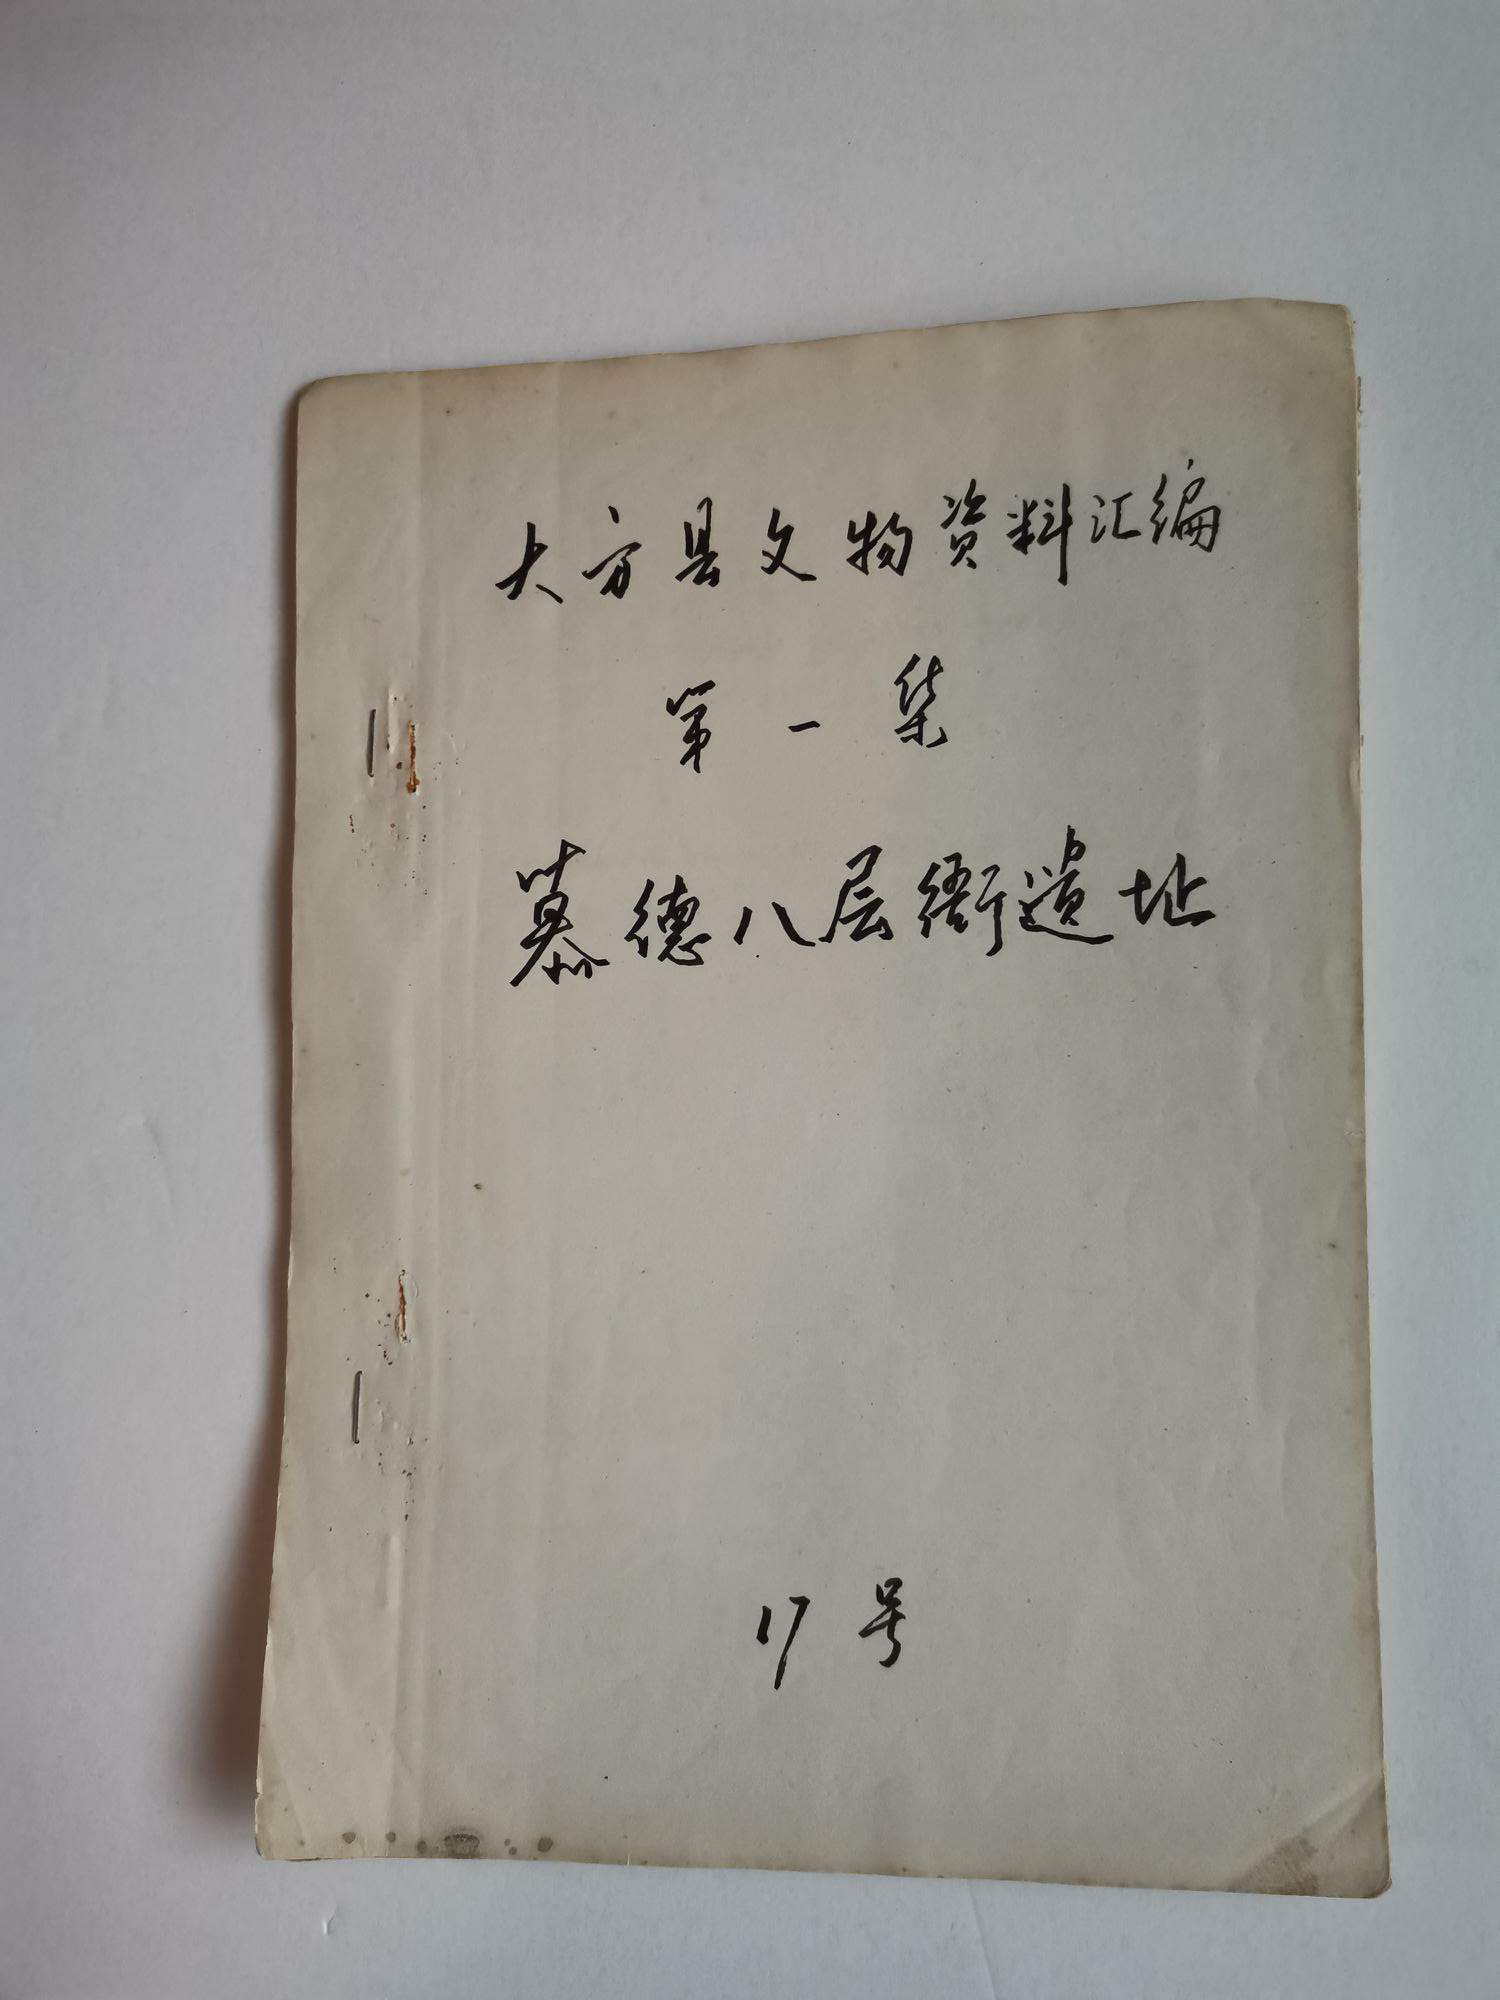 大方县文物资料汇编
第一集
慕德八层衙遗址
17号